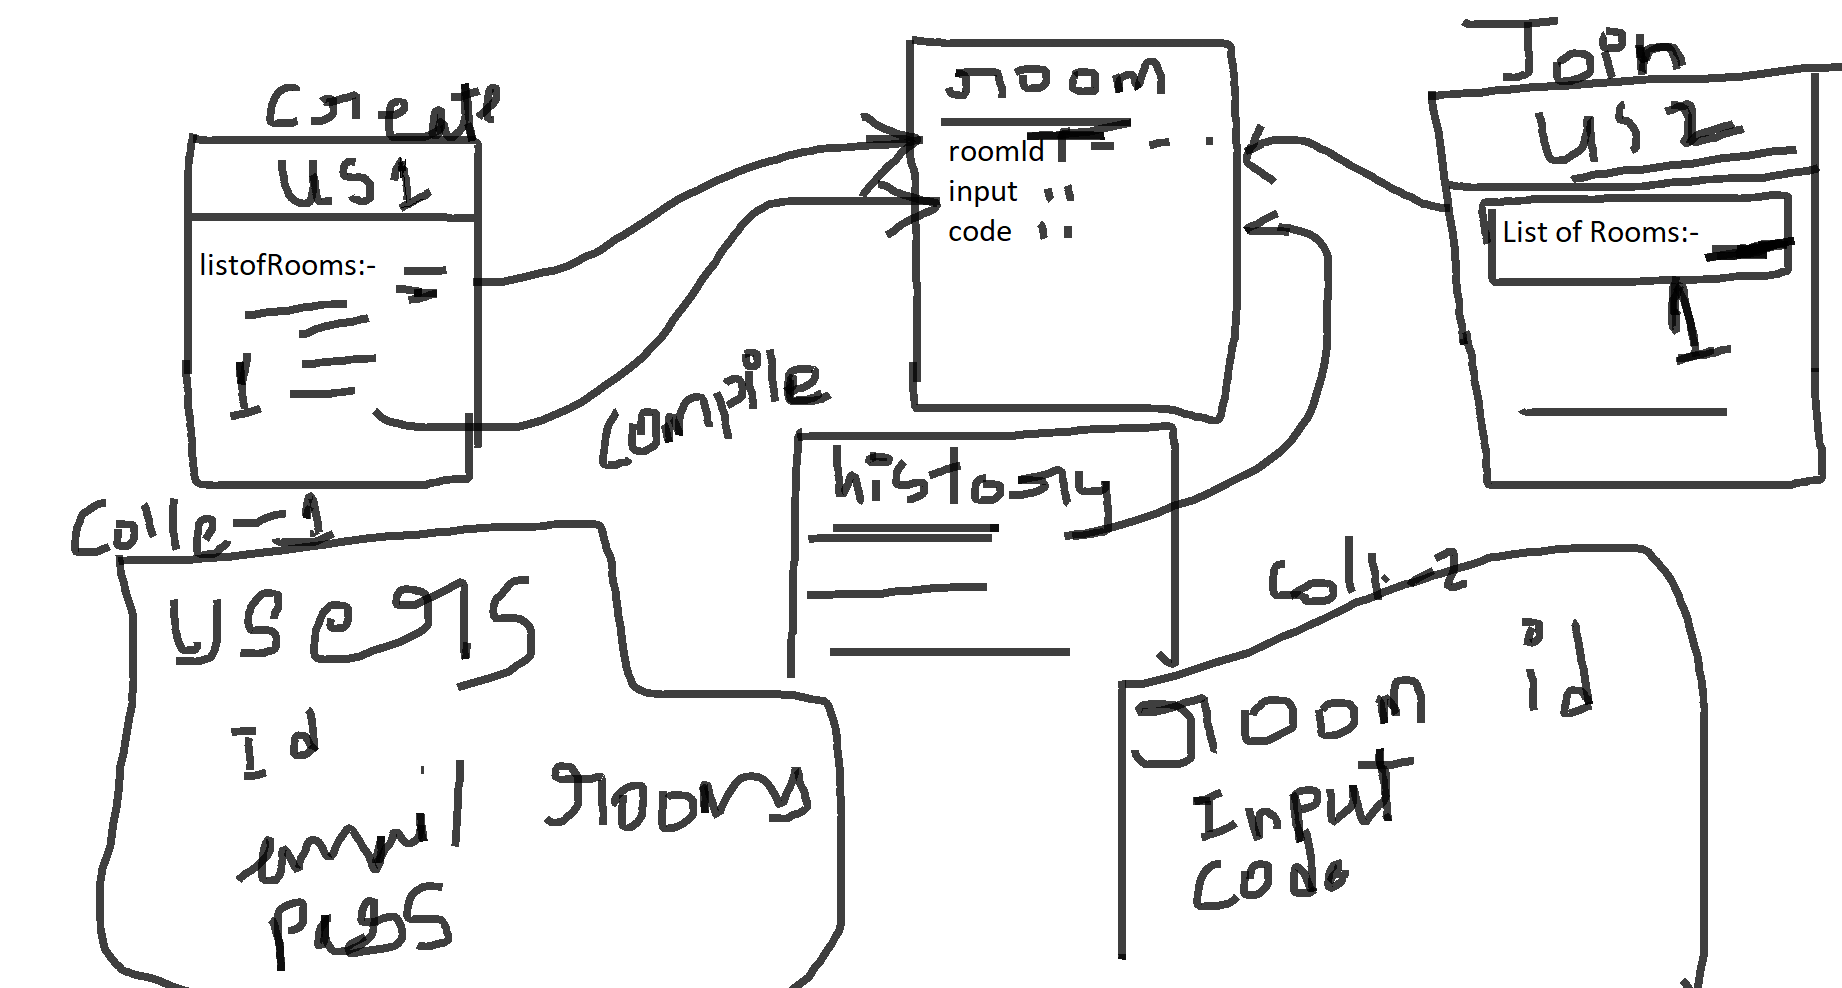 Create
US1
listofRooms:-
room
roomId
input
code
Join
US2
List of Rooms:-
1
Compile
history
Colle-1
users
Id
email
pass
rooms
Coll-2
room id
Input
Code